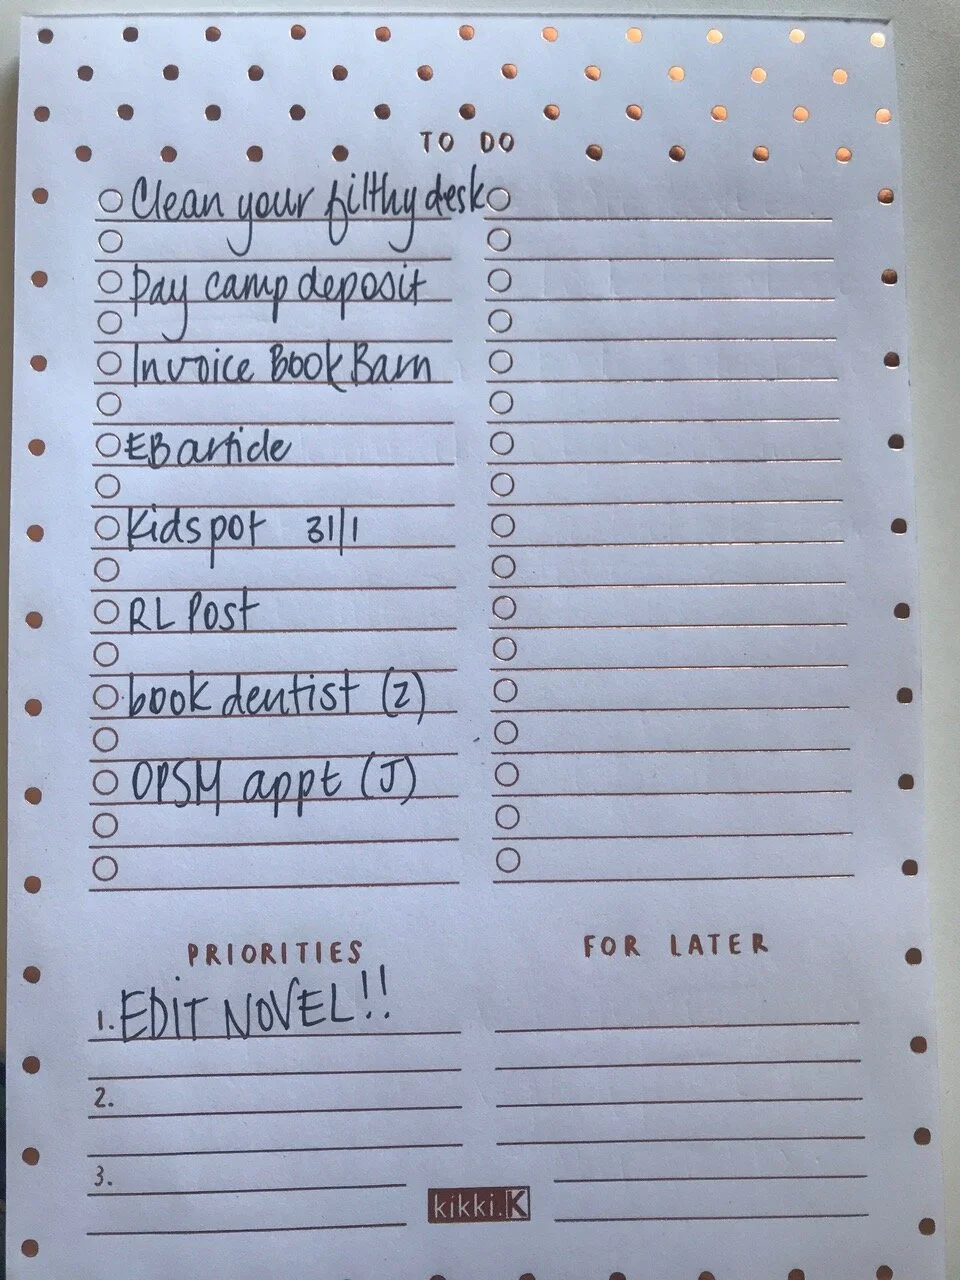 TO DO
Clean your filthy desk
Pay camp deposit
Invoice Book Barn
EB article
Kidspot 31/1
RL Post
book dentist (2)
OPSM appt (J)
PRIORITIES
1. EDIT NOVEL!!
2.
3.
FOR LATER
kikki.K